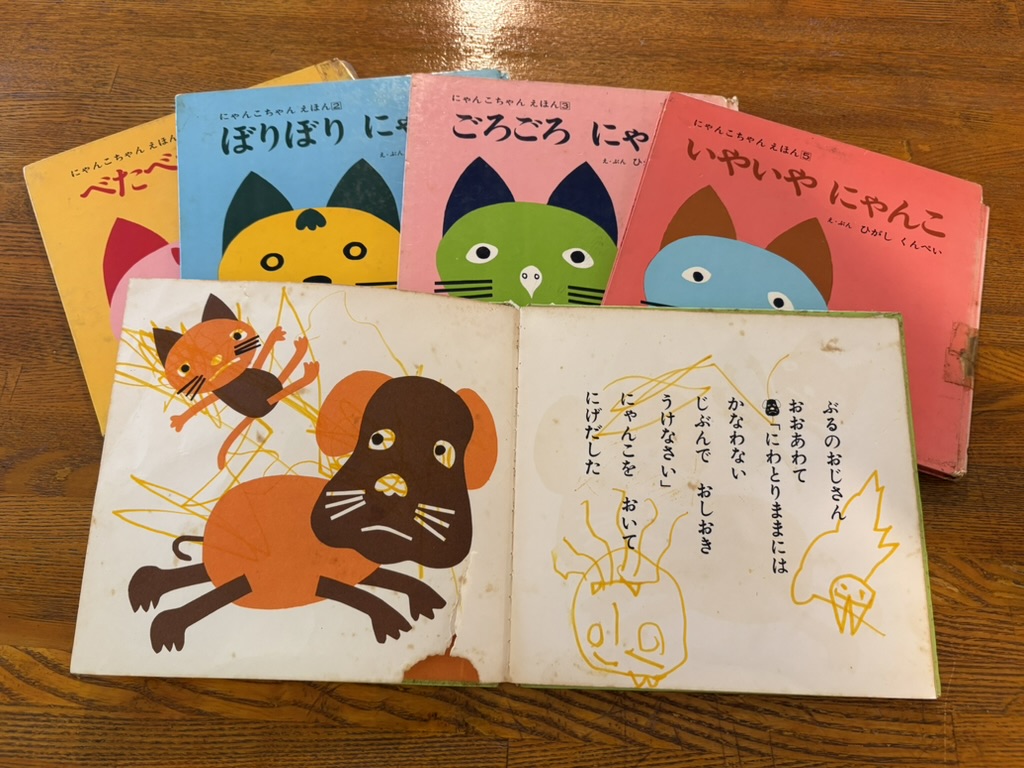 にゃんこちゃん えほん
べたべ
にゃんこちゃん えほん2
ぼりぼり にゃ
え・ぶん
にゃんこちゃん えほん3
ごろごろ にゃ
え・ぶん ひ
にゃんこちゃん えほん5
いやいや にゃんこ
え・ぶん ひがし くんぺい
ぶるのおじさん
おおあわて
「にわとりままには
かなわない
じぶんで おしおき
うけなさい」
にゃんこを おいて
にげだした